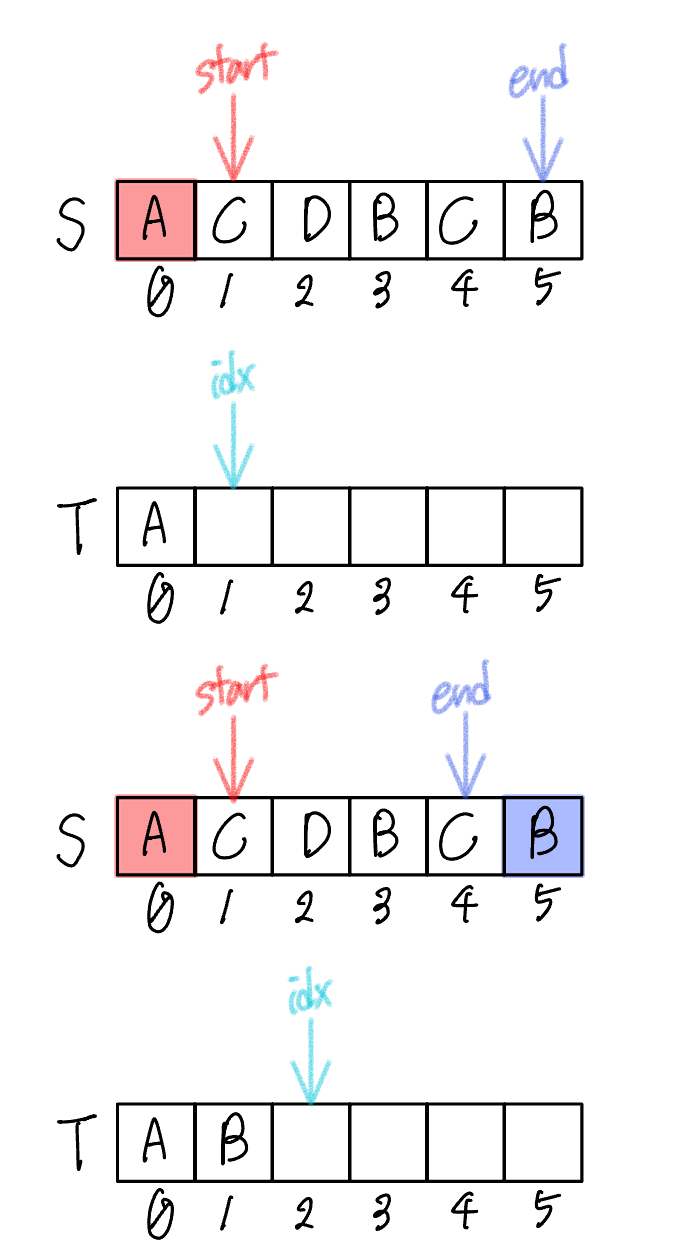 start end
S A C D B C B
0 1 2 3 4 5
idx
T A
0 1 2 3 4 5
start end
S A C D B C B
0 1 2 3 4 5
idx
T A B
0 1 2 3 4 5